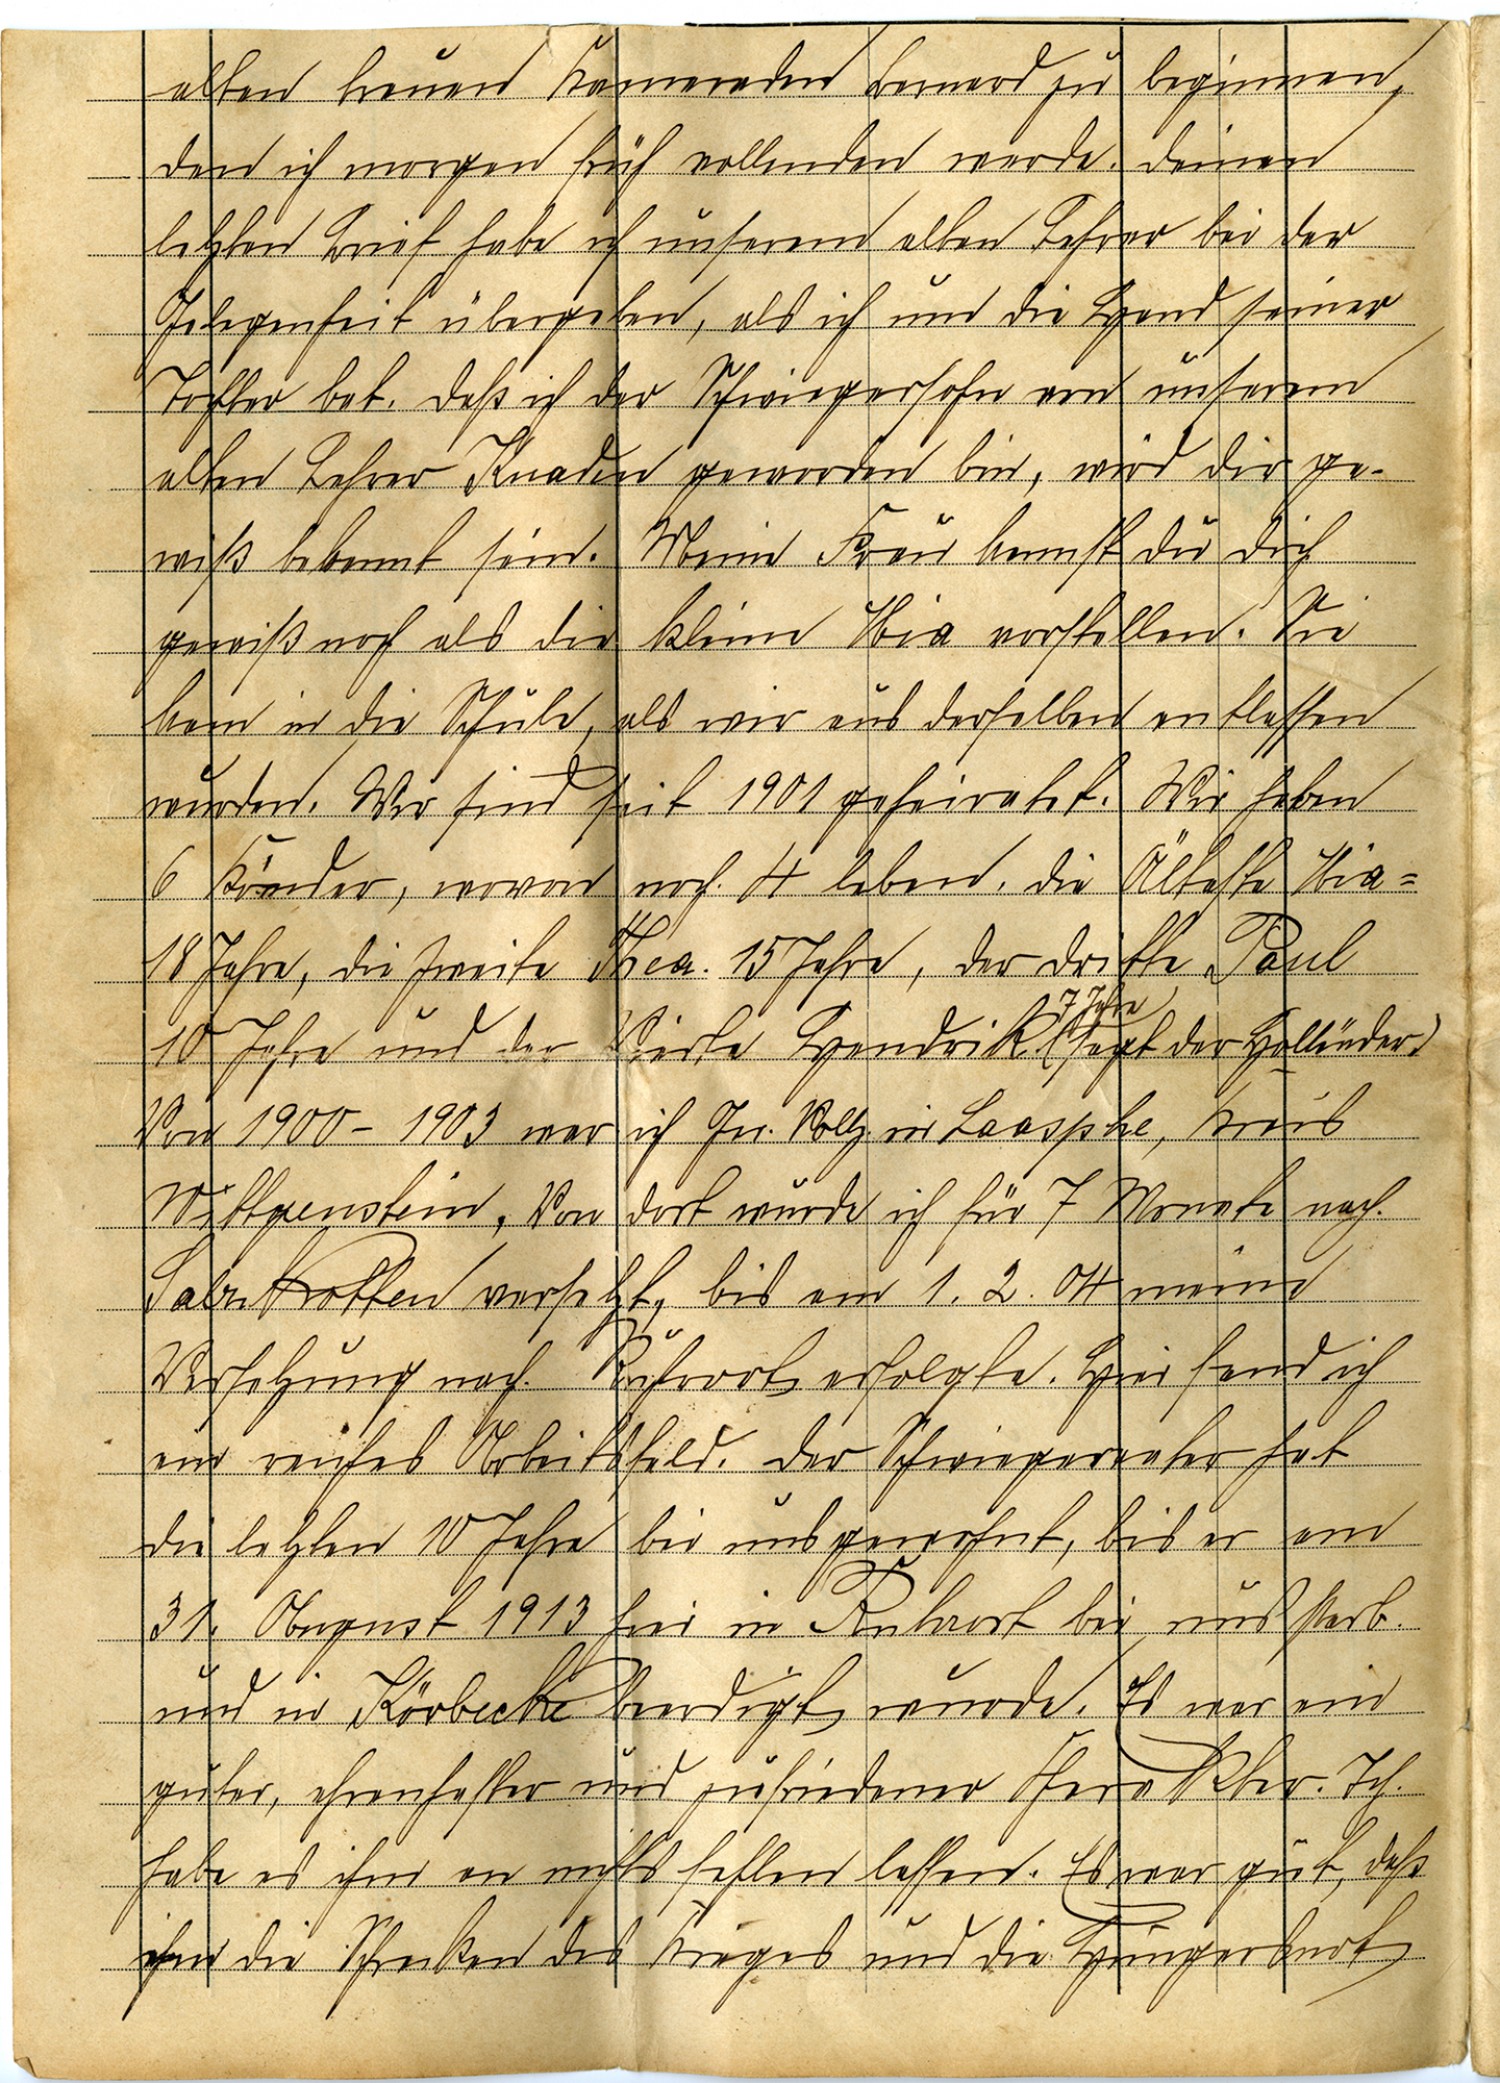 alten treuen Kameraden Bernard zu beginnen,
den ich morgen früh vollenden werde. Deinen
letzten Brief habe ich unserem alten Lehrer bei der
Gelegenheit übergeben, als ich um die Hand seiner
Tochter bat. Daß ich der Schwiegersohn von unserem
alten Lehrer Knaden geworden bin, wird dir ge-
wiß bekannt sein. Meine Frau kannst du dich
gewiß noch als die kleine Mia vorstellen. Sie
kam in die Schule, als wir aus derselben entlassen
wurden. Wir sind seit 1901 geheiratet. Wir haben
6 Kinder, wovon noch 4 leben. die Älteste Mia =
18 Jahre, die zweite Thea. 15 Jahre, der dritte Paul
10 Jahre und der Vierte Hendrik (sagt der Holländer.)
7 Jahre
Von 1900 - 1903 war ich Ger. Vollz. in Laasphe, Kreis
Wittgenstein, Von dort wurde ich für 7 Monate nach
Salzkotten versetzt, bis am 1. 2. 04 meine
Versetzung nach Ruhrort erfolgte. Hier fand ich
ein reiches Arbeitsfeld. Der Schwiegervater hat
die letzten 10 Jahre bei uns gewohnt, bis er am
31. August 1913 hier in Ruhrort bei uns starb.
und in Körbecke beerdigt wurde. Es war ein
guter, ehrenhafter und zufriedener Charakter. Ich
habe es ihm an nichts fehlen lassen. Es war gut, daß
ihm die Schrecken des Krieges und die